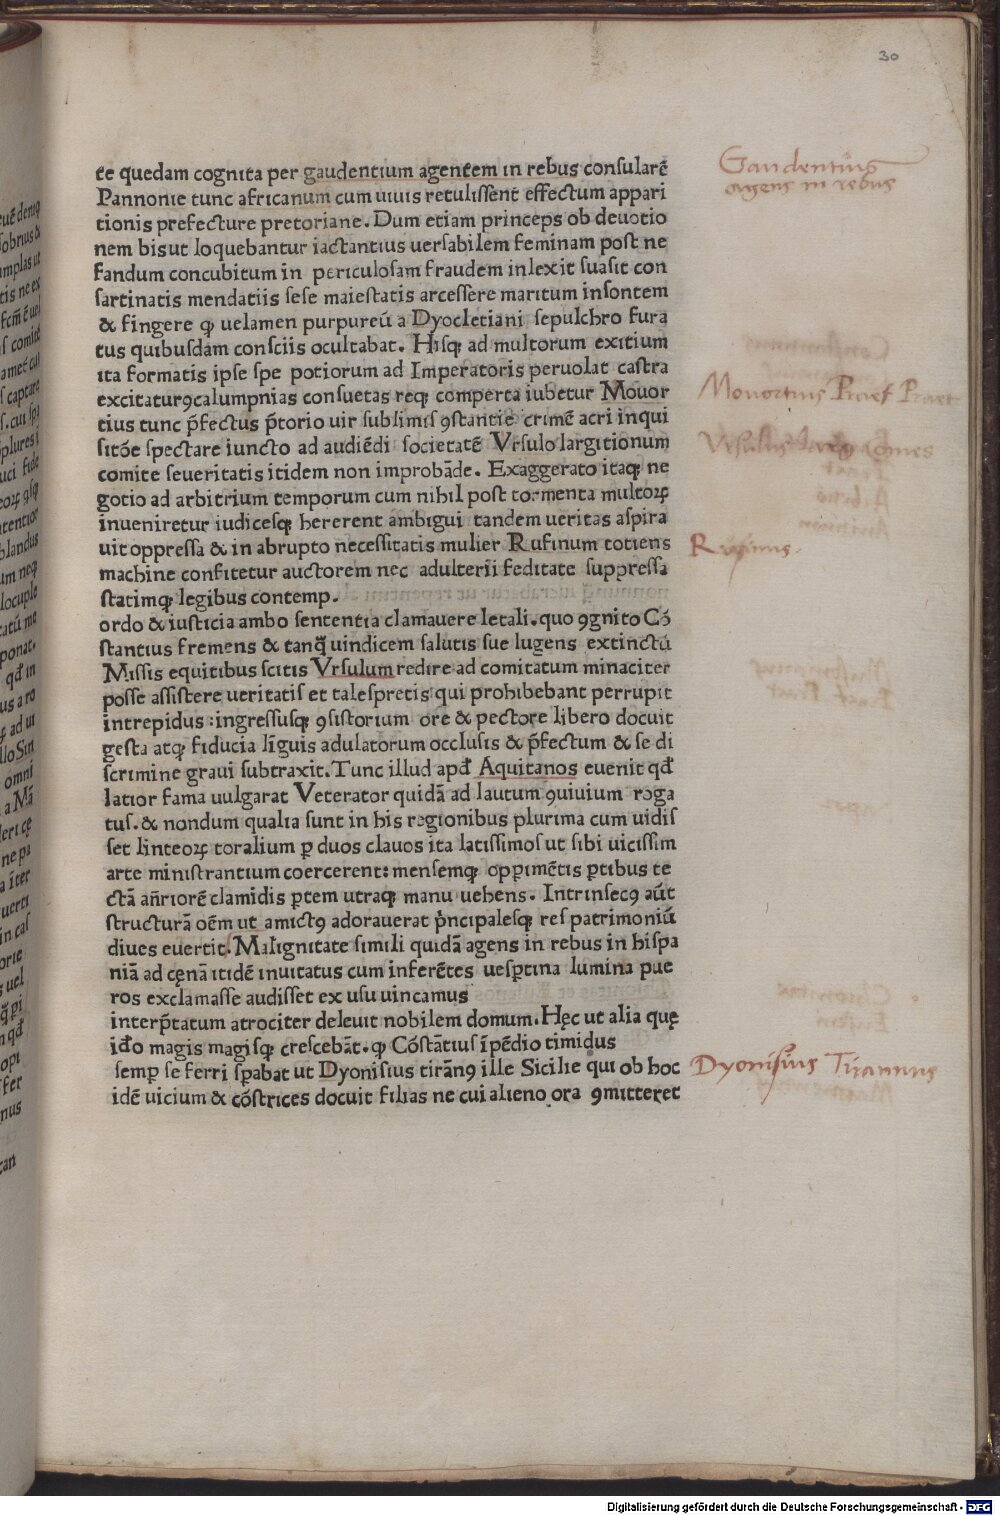 30
te quedam cognita per gaudentium agentem in rebus consularē
Pannonie tunc africanum cum uiuis retulissent effectum appari
tionis prefecture pretoriane. Dum etiam princeps ob deuotio
nem bis ut loquebantur iactantius uersabilem feminam post ne
fandum concubitum in periculosam fraudem inlexit suasit con
sartinatis mendatiis sese maiestatis arcessere maritum insontem
& fingere ꝙ uelamen purpureū a Dyocletiani sepulchro fura
tus quibusdam consciis ocultabat. Hisqꝫ ad multorum exitium
ita formatis ipse spe potiorum ad Imperatoris peruolat castra
excitaturꝯ calumpnias consuetas reqꝫ comperta iubetur Mouor
tius tunc p̄fectus p̄torio uir sublimis ꝯstantie crimē acri inqui
sitōe spectare iuncto ad audiēdi societatē Vrsulo largitionum
comite seueritatis itidem non improbāde. Exaggerato itaqꝫ ne
gotio ad arbitrium temporum cum nihil post tormenta multoꝝ
inueniretur iudicesqꝫ hererent ambigui tandem ueritas aspira
uit oppressa & in abrupto necessitatis mulier Rufinum totiens
machine confitetur auctorem nec adulterii feditate suppressa
statimqꝫ legibus contemp.
ordo & iusticia ambo sententia clamauere letali. quo ꝯgnito Cō
stantius fremens & tanq̄ uindicem salutis sue lugens extinctū
Missis equitibus scitis Vrsulum redire ad comitatum minaciter
posse assistere ueritatis et talespretis qui prohibebant perrupit
intrepidus : ingressusqꝫ ꝯsistorium ore & pectore libero docuit
gesta atqꝫ fiducia linguis adulatorum occlusis & p̄fectum & se di
scrimine graui subtraxit. Tunc illud apđ Aquitanos euenit qđ
latior fama uulgarat Veterator quidā ad lautum ꝯuiuium roga
tus. & nondum qualia sunt in his regionibus plurima cum uidis
set linteoꝝ toralium ꝑ duos clauos ita latissimos ut sibi uicissim
arte ministrantium coercerent: mensemqꝫ opp̄rimētis ꝑtibus te
ctā an̄riorē clamidis ꝑtem utraqꝫ manu uehens. Intrinsecꝯ aūt
structurā oēm ut amictꝯ adorauerat p̄ncipalesqꝫ res patrimoniū
diues euertit. Malignitate simili quidā agens in rebus in hispa
niā ad cęnā itidē inuitatus cum inferētes uesꝑtina lumina pue
ros exclamasse audisset ex usu uincamus
interp̄tatum atrociter deleuit nobilem domum. Hęc ut alia quę
iđo magis magisqꝫ crescebāt. ꝙ Cōstātius īpēdio timidus
semꝑ se ferri sꝑabat ut Dyonisius tirānꝯ ille Sicilie qui ob hoc
idē uicium & cōstrices docuit filias ne cui alieno ora ꝯmitteret
Gaudentius
agens in rebus
Mouortius Praef Praet
Vrsulus Comes
Rufinus.
Dyonisius Tirannus
Digitalisierung gefördert durch die Deutsche Forschungsgemeinschaft - DFG